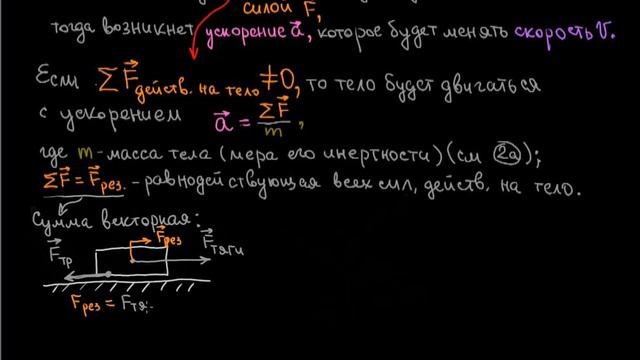 силой F,
тогда возникнет ускорение a⃗, которое будет менять скорость V⃗.
Если ΣF⃗ действ. на тело ≠0, то тело будет двигаться
с ускорением a⃗ = ΣF⃗/m,
где m - масса тела (мера его инертности) (см 2а);
ΣF⃗ = F⃗рез. - равнодействующая всех сил, действ. на тело.
Сумма векторная:
F⃗тр F⃗рез F⃗тяги
Fрез = Fтя